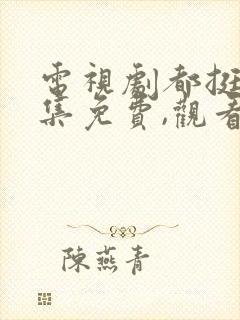 電視劇都挺
集免費,觀看
陳燕青